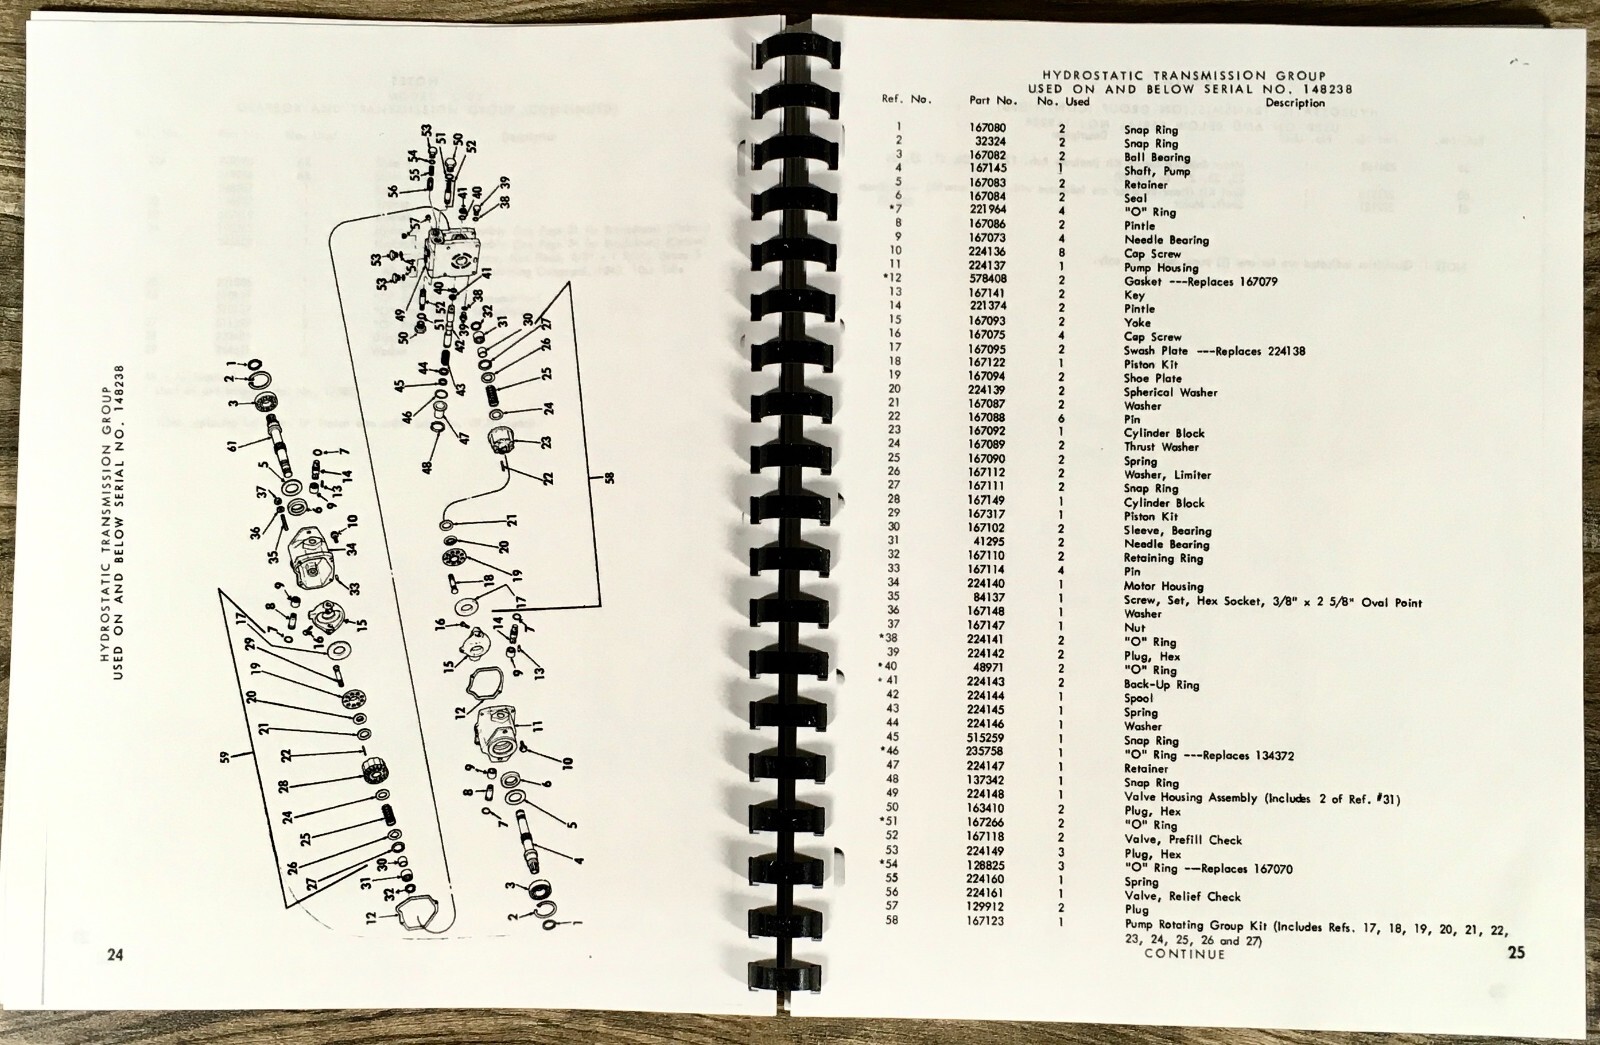 HYDROSTATIC TRANSMISSION GROUP
USED ON AND BELOW SERIAL NO. 148238
24
HYDROSTATIC TRANSMISSION GROUP
USED ON AND BELOW SERIAL NO. 148238
Ref. No. Part No. No. Used Description
1 167080 2 Snap Ring
2 32324 2 Snap Ring
3 167082 2 Ball Bearing
4 167145 1 Shaft, Pump
5 167083 2 Retainer
6 167084 2 Seal
*7 221964 4 "O" Ring
8 167086 2 Pintle
9 167073 4 Needle Bearing
10 224136 8 Cap Screw
11 224137 1 Pump Housing
*12 578408 2 Gasket ---Replaces 167079
13 167141 2 Key
14 221374 2 Pintle
15 167093 2 Yoke
16 167075 4 Cap Screw
17 167095 2 Swash Plate ---Replaces 224138
18 167122 1 Piston Kit
19 167094 2 Shoe Plate
20 224139 2 Spherical Washer
21 167087 2 Washer
22 167088 6 Pin
23 167092 1 Cylinder Block
24 167089 2 Thrust Washer
25 167090 2 Spring
26 167112 2 Washer, Limiter
27 167111 2 Snap Ring
28 167149 1 Cylinder Block
29 167317 1 Piston Kit
30 167102 2 Sleeve, Bearing
31 41295 2 Needle Bearing
32 167110 2 Retaining Ring
33 167114 4 Pin
34 224140 1 Motor Housing
35 84137 1 Screw, Set, Hex Socket, 3/8" x 2 5/8" Oval Point
36 167148 1 Washer
37 167147 1 Nut
*38 224141 2 "O" Ring
39 224142 2 Plug, Hex
*40 48971 2 "O" Ring
*41 224143 2 Back-Up Ring
42 224144 1 Spool
43 224145 1 Spring
44 224146 1 Washer
45 515259 1 Snap Ring
*46 235758 1 "O" Ring ---Replaces 134372
47 224147 1 Retainer
48 137342 1 Snap Ring
49 224148 1 Valve Housing Assembly (Includes 2 of Ref. #31)
50 163410 2 Plug, Hex
*51 167266 2 "O" Ring
52 167118 2 Valve, Prefill Check
53 224149 3 Plug, Hex
*54 128825 3 "O" Ring ---Replaces 167070
55 224160 1 Spring
56 224161 1 Valve, Relief Check
57 129912 2 Plug
58 167123 1 Pump Rotating Group Kit (Includes Refs. 17, 18, 19, 20, 21, 22,
23, 24, 25, 26 and 27)
CONTINUE
25